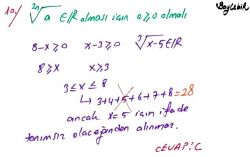 Baylemir
10) ²ⁿ√a ∈ℝ olması için a≥0 olmalı
8-x≥0 x-3≥0 ³√x-5∈ℝ
8≥x x≥3
3≤x≤8
↳ 3+4+5+6+7+8=28
ancak x=5 için ifade
tanımsız olacağından alınmaz.
CEVAP: C